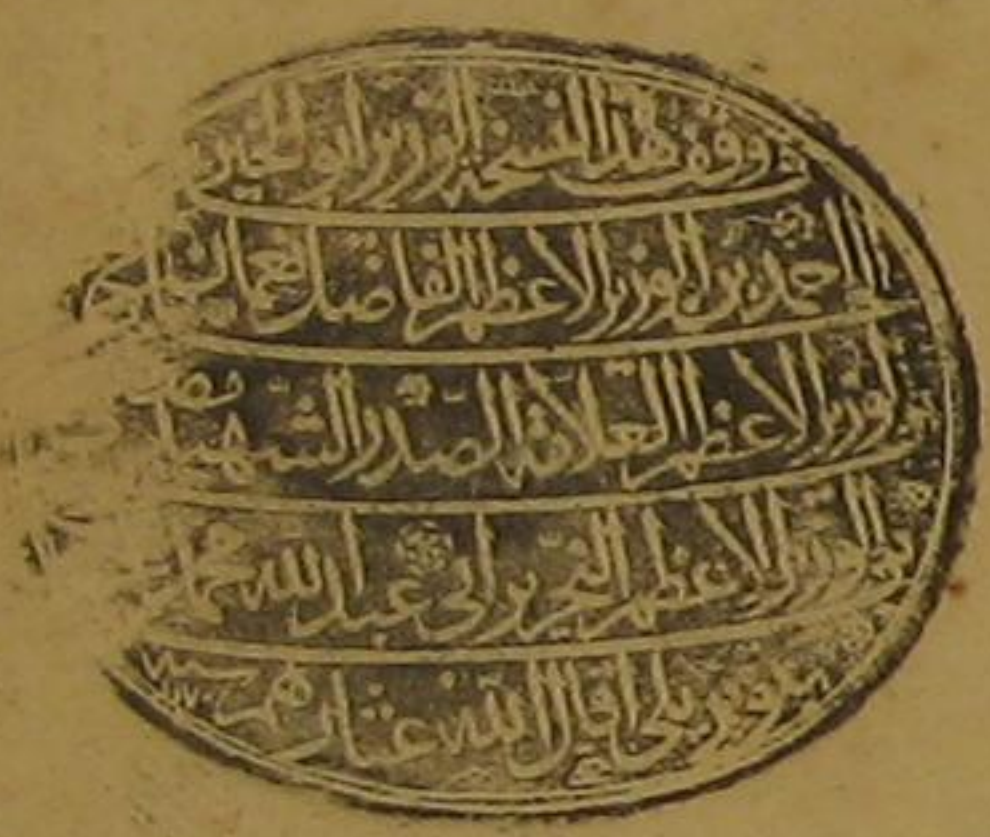 وقف هذه النسخة الوزير ابو الخير
احمد بن الوزير الاعظم الفاضل نعمان
الوزير الاعظم العلامة الصدر الشهيد
الوزير الاعظم النحرير ابي عبد الله محمد
اقال الله عثارهم سنة